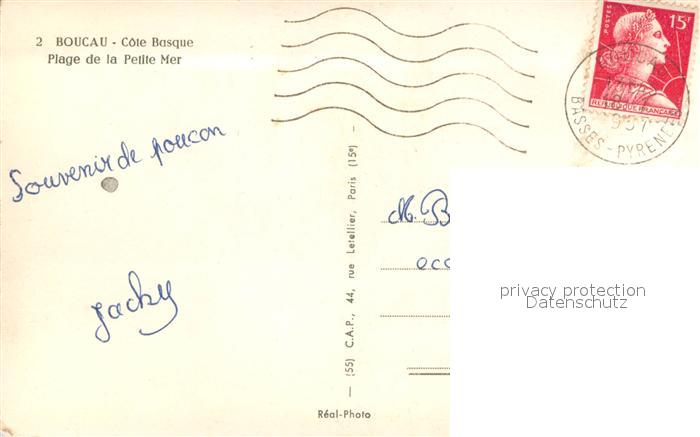 2 BOUCAU - Côte Basque
Plage de la Petite Mer
POSTES
15F
REPUBLIQUE FRANÇAISE
957
BASSES-PYRENEES
Souvenir de poucon
Jacky
M. B
eco
(55) C.A.P., 44, rue Letellier, Paris (15e)
Réal-Photo
privacy protection
Datenschutz